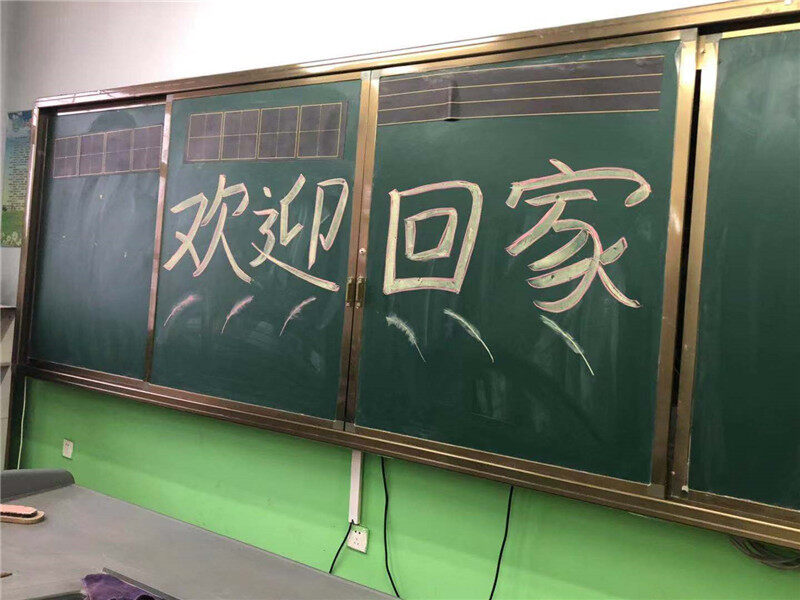 欢迎回家